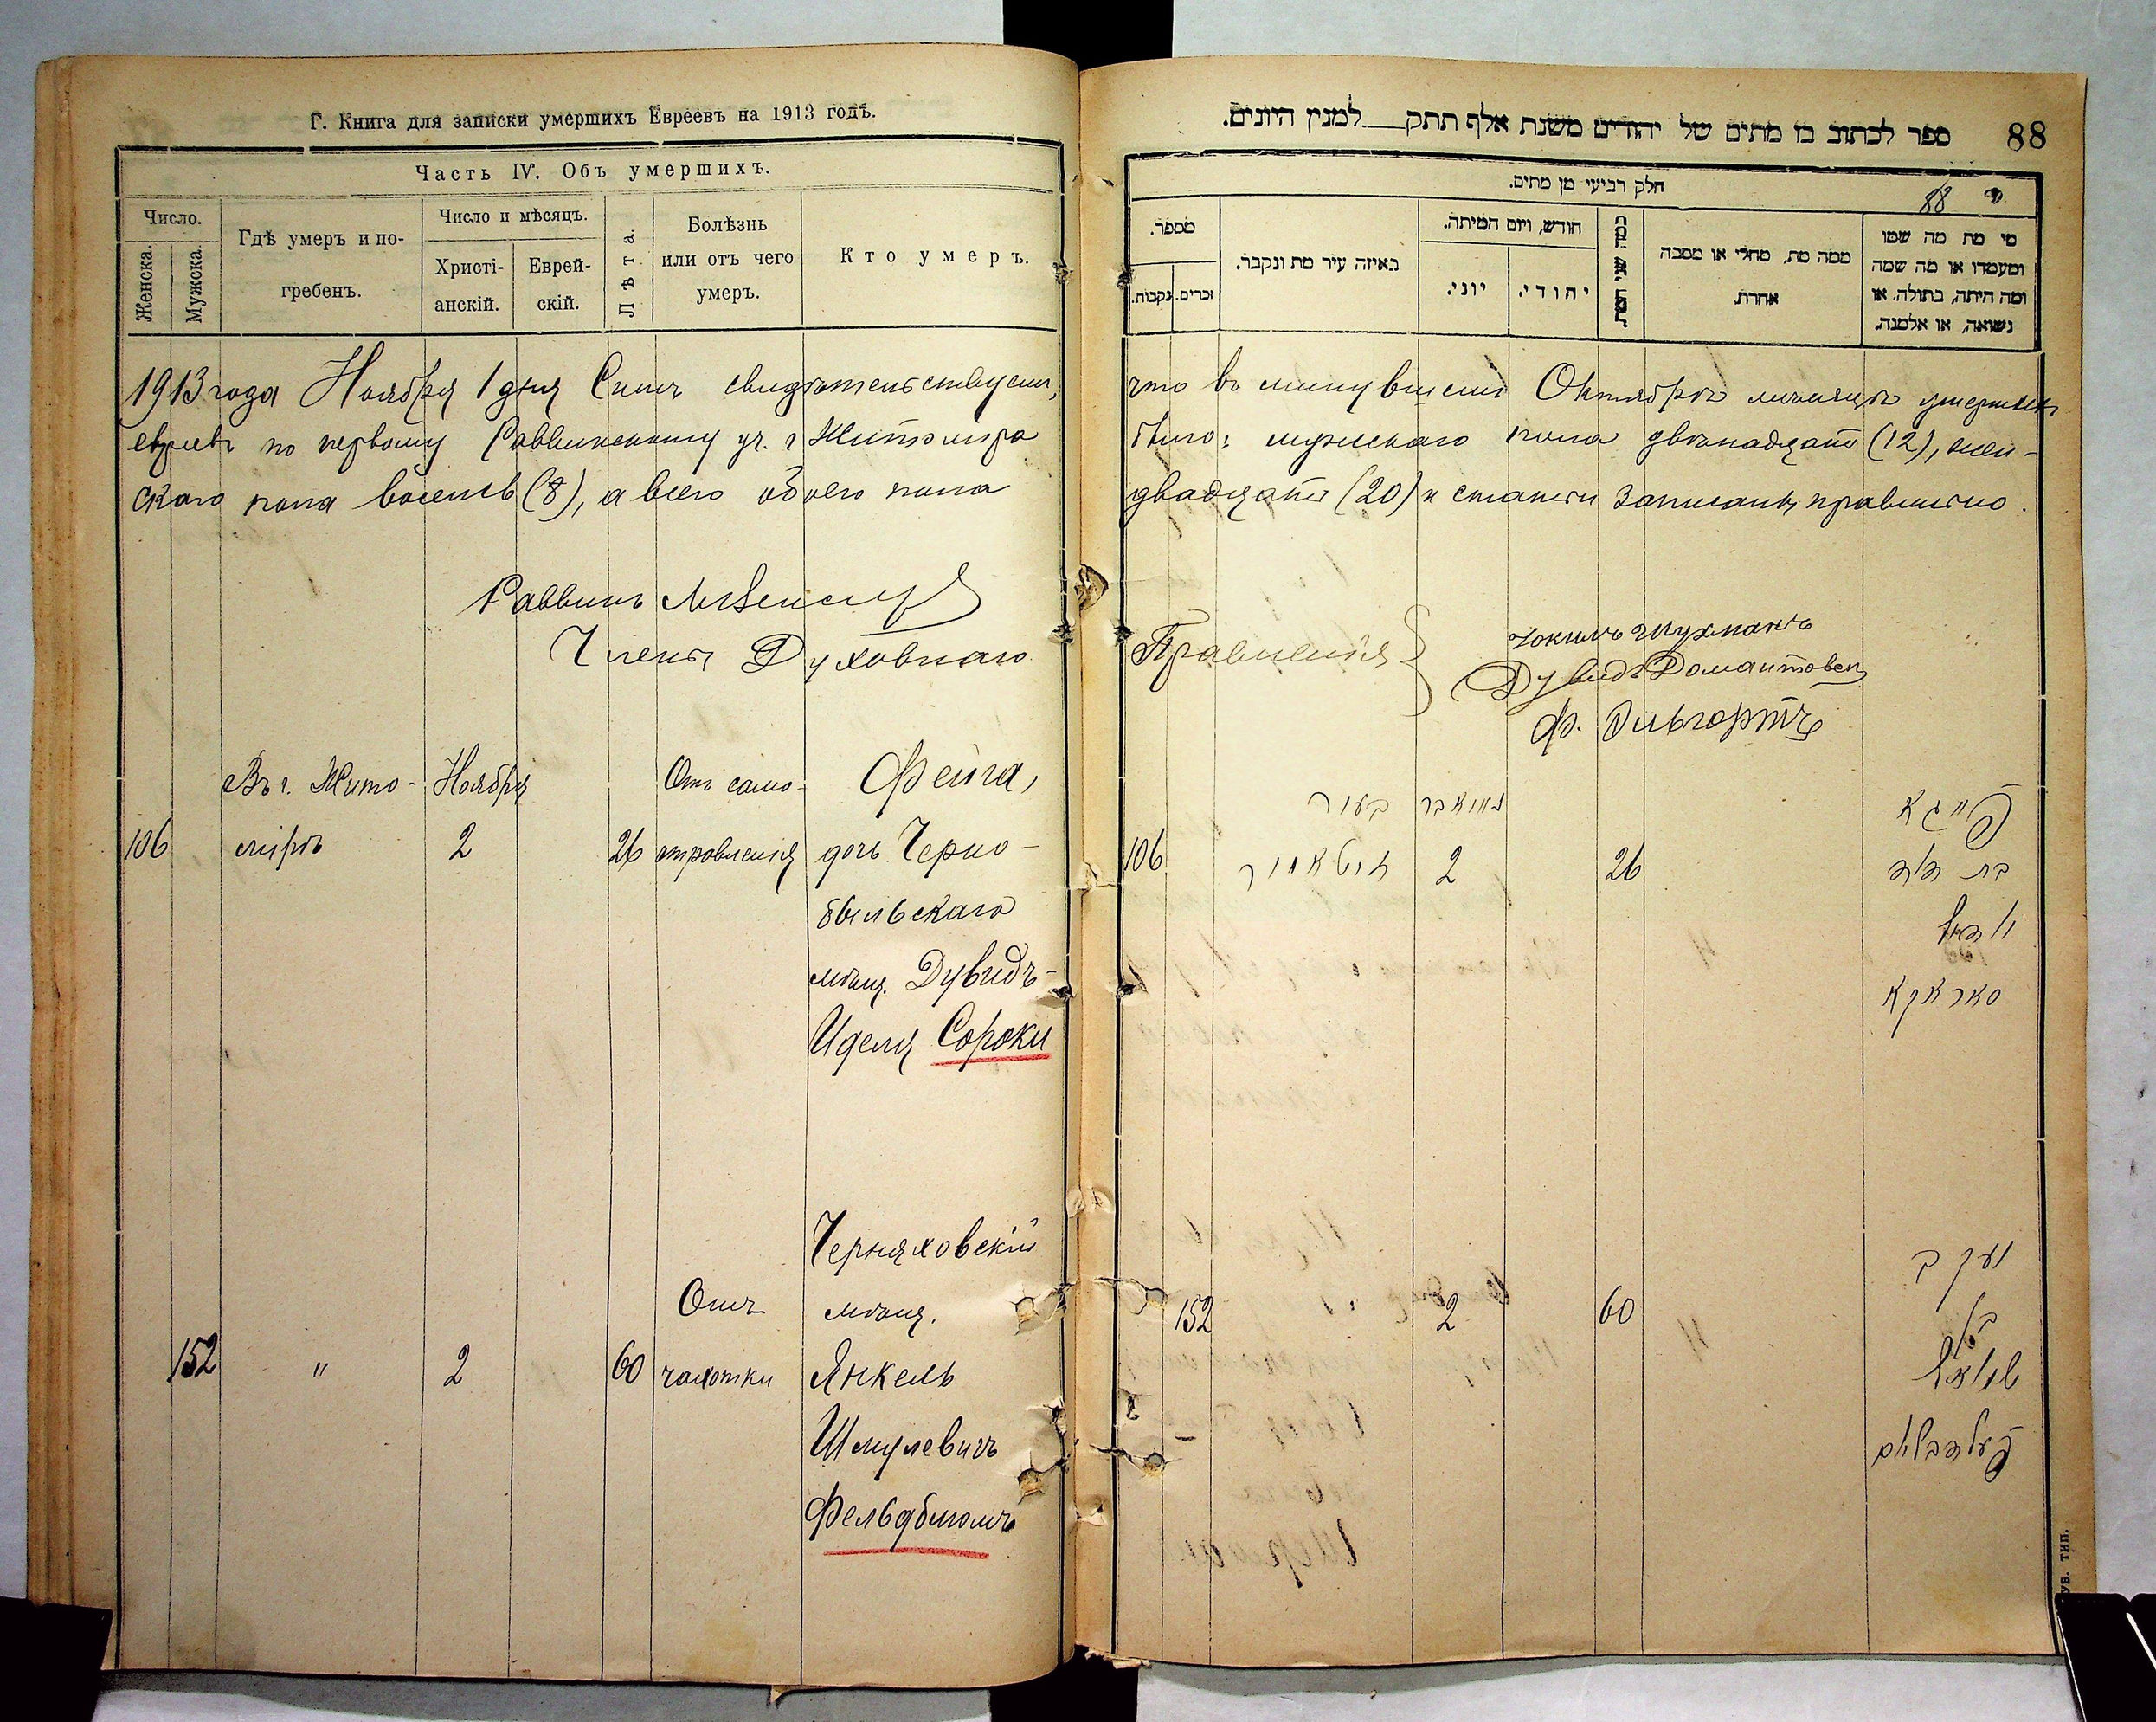 Г. Книга для записки умершихъ Евреевъ на 1913 годъ.
Часть IV. Объ умершихъ.
Число.
Женска.
Мужска.
Гдѣ умеръ и по-
гребенъ.
Число и мѣсяцъ.
Христі-
анскій.
Еврей-
скій.
Лѣта.
Болѣзнь
или отъ чего
умеръ.
Кто умеръ.
1913 года Ноября 1 дня Симъ свидѣтельствуемъ,
евреевъ по первому Раввинскому уч. г Житомира
скаго пола восемь (8), а всего обоего пола
Раввинъ
Члены Духовнаго
Въ г. Жито- Ноября Отъ само- Фейга,
106 мірѣ 2 26 отравленія дочь Черно-
быльскаго
мѣщ. Дувидъ-
Иделя Сороки
Черняховскій
Отъ мѣщ.
152 " 2 60 чахотки Янкель
Шмулевичъ
Фельдблюмъ
ספר לכתוב בו מתים של יהודים משנת אלף תתק למנין היונים.
88
חלק רביעי מן מתים.
88
מספר.
זכרים.
נקבות.
באיזה עיר מת ונקבר.
חודש, ויום המיתה.
יוני.
יהודי.
כמה שני המת
ממה מת, מחלי או מסבה
אחרת.
מי מת מה שמו
ומעמדו או מה שמה
ומה היתה, בתולה, או
נשואה, או אלמנה.
что въ минувшемъ Октябрѣ мѣсяцѣ умершихъ
было: мужского пола двѣнадцать (12), жен-
двадцать (20) и статьи записаны правильно.
Правленія
Іокимъ Шухманъ
Дувидъ
Ф.
בעיר נאואבר פייגא
106 זיטאמיר 2 26 בת דוד
יודל
סאראקא
יעקב
152 2 60 בר
שמואל
פעלדבלום
УВ. ТИП.